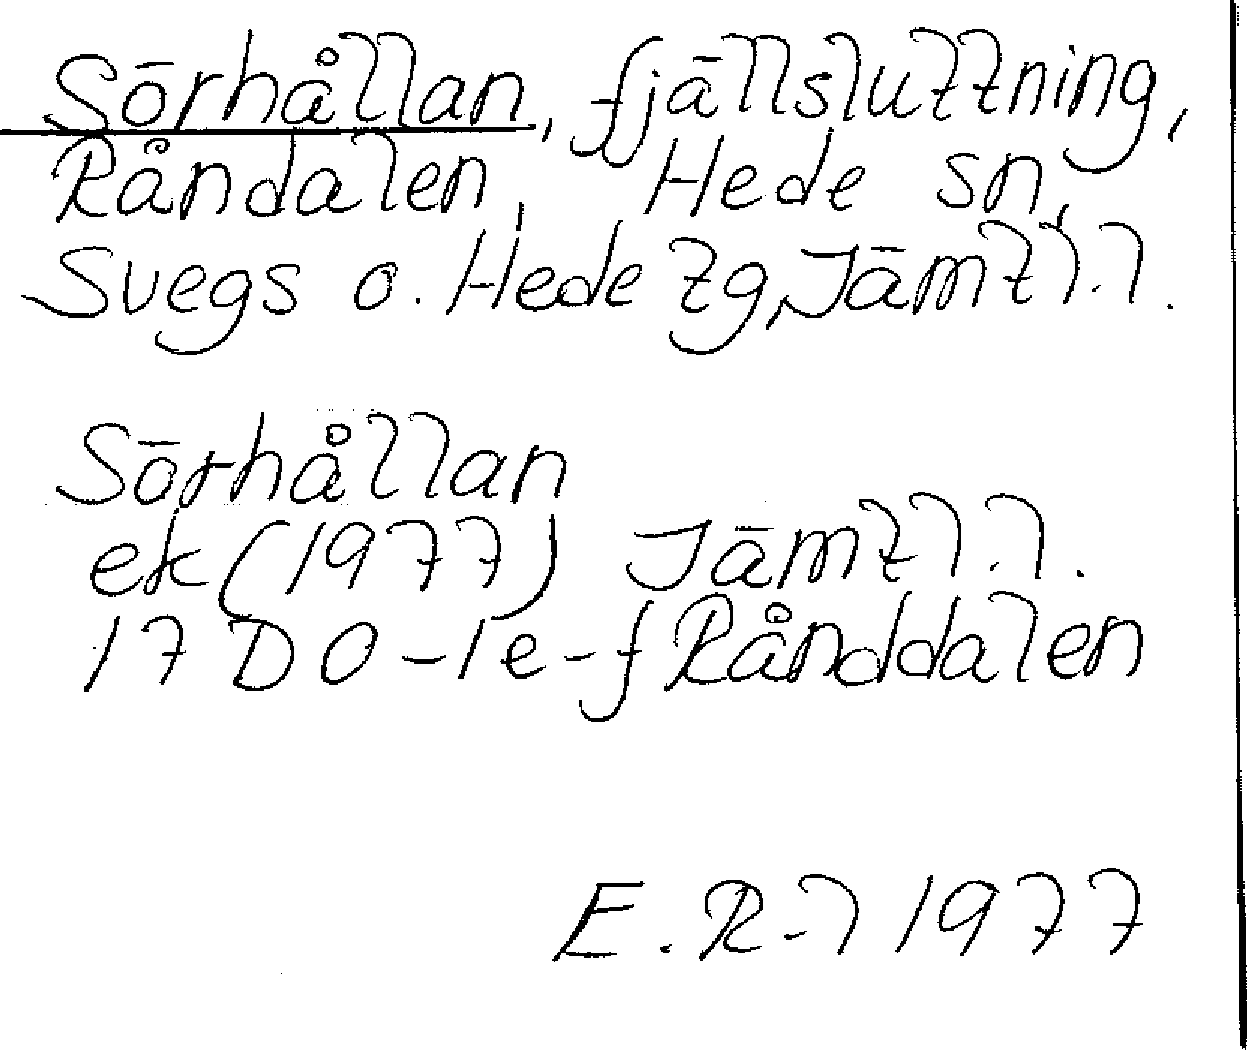 Sörhållan, fjällsluttning,
Råndalen, Hede sn,
Svegs o. Hede tg, Jämtl.l.
Sörhållan
ek (1977) Jämtl.l.
17 D 0 - 1 e - f Rånddalen
E. R-l 1977